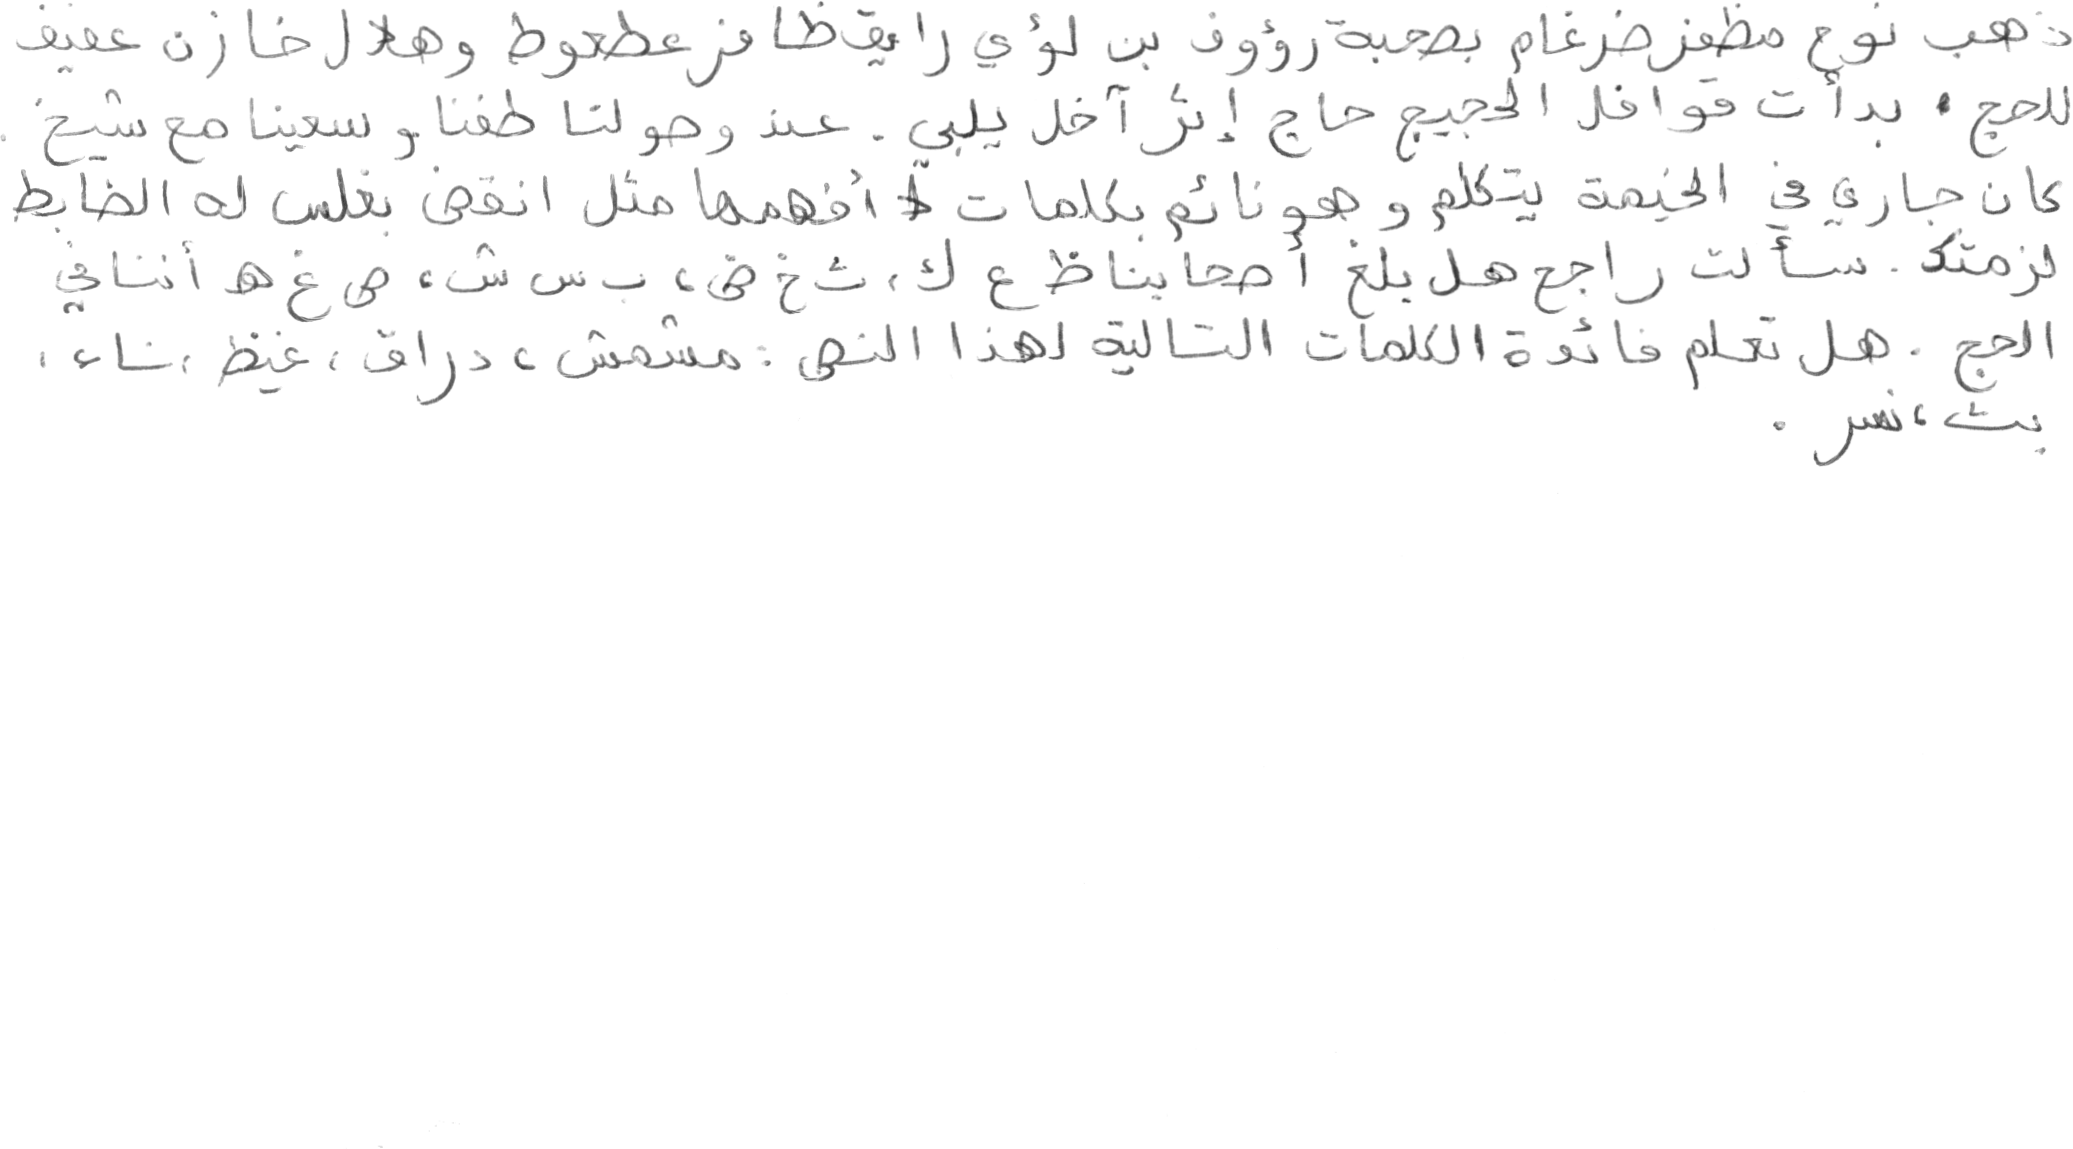 ذهب نوح مظفر ضرغام بصحبة رؤوف بن لؤي رايق ظافر عطعوط وهلال خازن عفيف
للحج . بدأت قوافل الحجيج حاج إثر آخل يلبي . عند وصولنا طفنا وسعينا مع شيخ .
كان جاري في الخيمة يتكلم وهو نائم بكلمات لا أفهمها مثل انقض بغلس له الضابط
لزمتك . سألت راجح هل بلغ أصحابنا ظ ع ك ، ث خ ض ، ب س ش ، ص غ هـ أننا في
الحج . هل تعلم فائدة الكلمات التالية لهذا النص : مشمش ، دراق ، غيظ ، شاء ،
بث ، نسر .